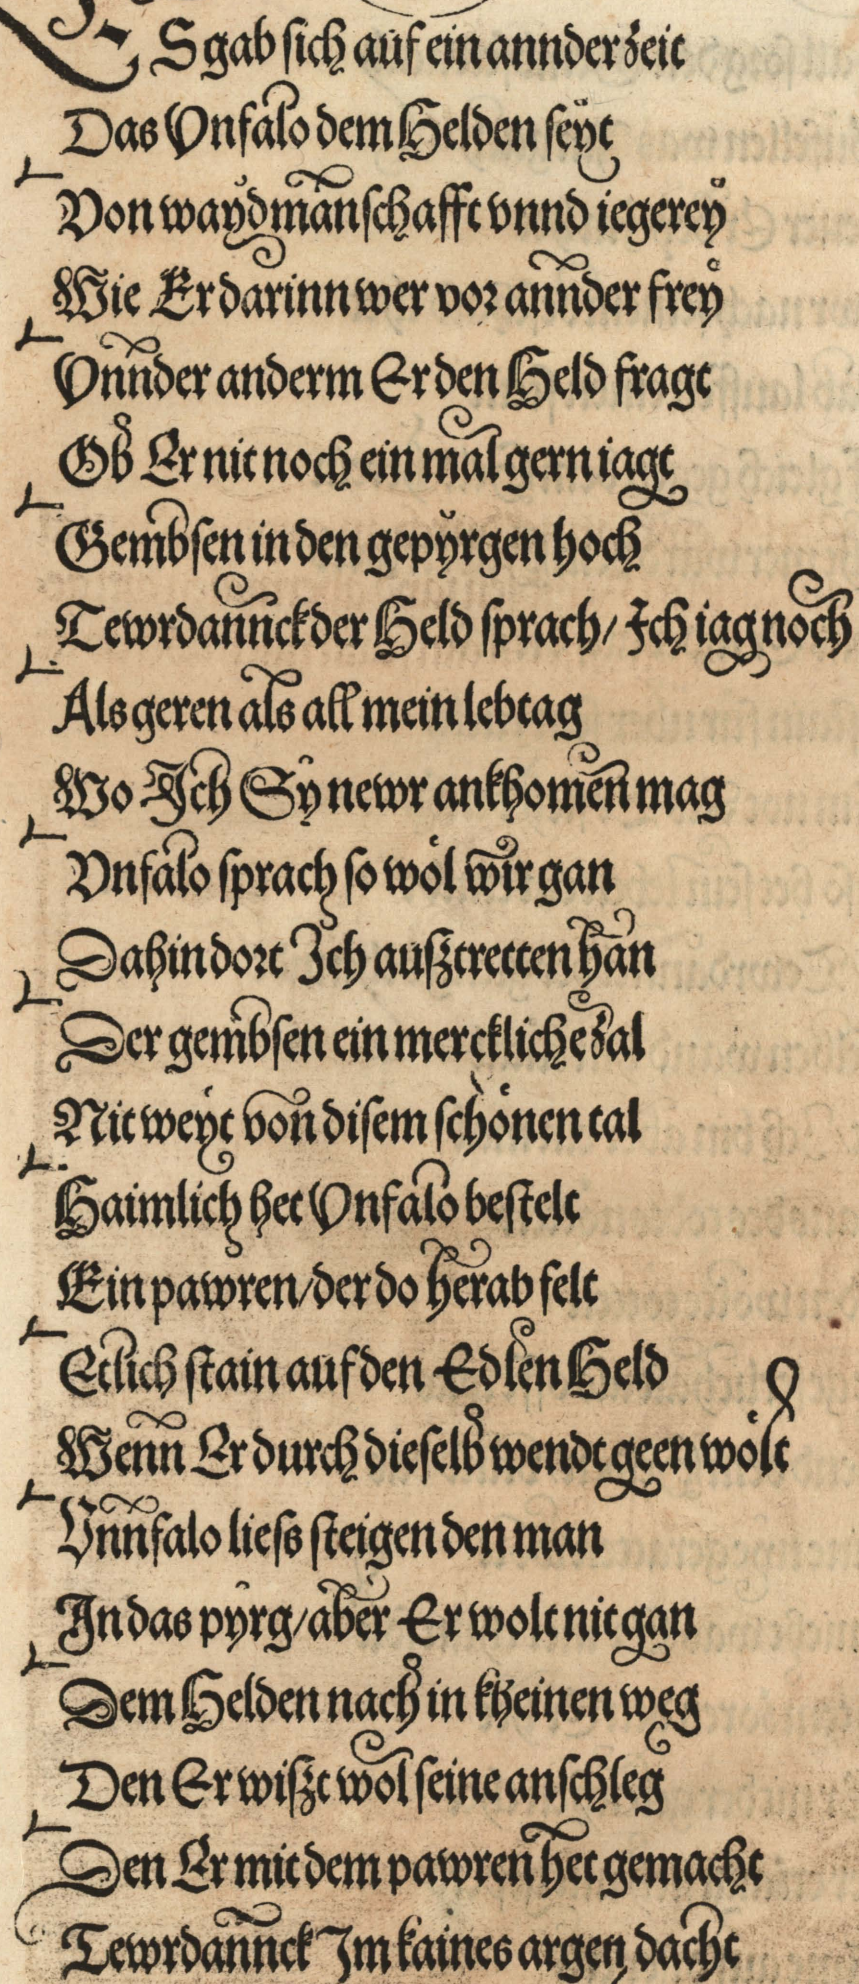 ES gab sich auf ein annder zeit
Das Vnfalo dem Helden seÿt
Von waÿdmanschafft vnnd iegereÿ
Wie Er darinn wer vor annder freÿ
Vnnder anderm Er den Held fragt
Ob Er nit noch ein mal gern iagt
Gembsen in den gepÿrgen hoch
Tewrdannck der Held sprach/ Ich iag noch
Als geren als all mein lebtag
Wo Ich Sÿ newr ankhomen mag
Vnfalo sprach so wöl wir gan
Dahin dort Ich auſztretten han
Der gembsen ein merckliche zal
Nit weÿt von disem schönen tal
Haimlich het Vnfalo bestelt
Ein pawren/der do herab felt
Etlich stain auf den Edlen Held
Wenn Er durch dieselb wendt geen wölt
Vnnfalo liess steigen den man
In das pÿrg/aber Er wolt nit gan
Dem Helden nach in kheinen weg
Den Er wiſzt wol seine anschleg
Den Er mit dem pawren het gemacht
Tewrdannck Im kaines argen dacht